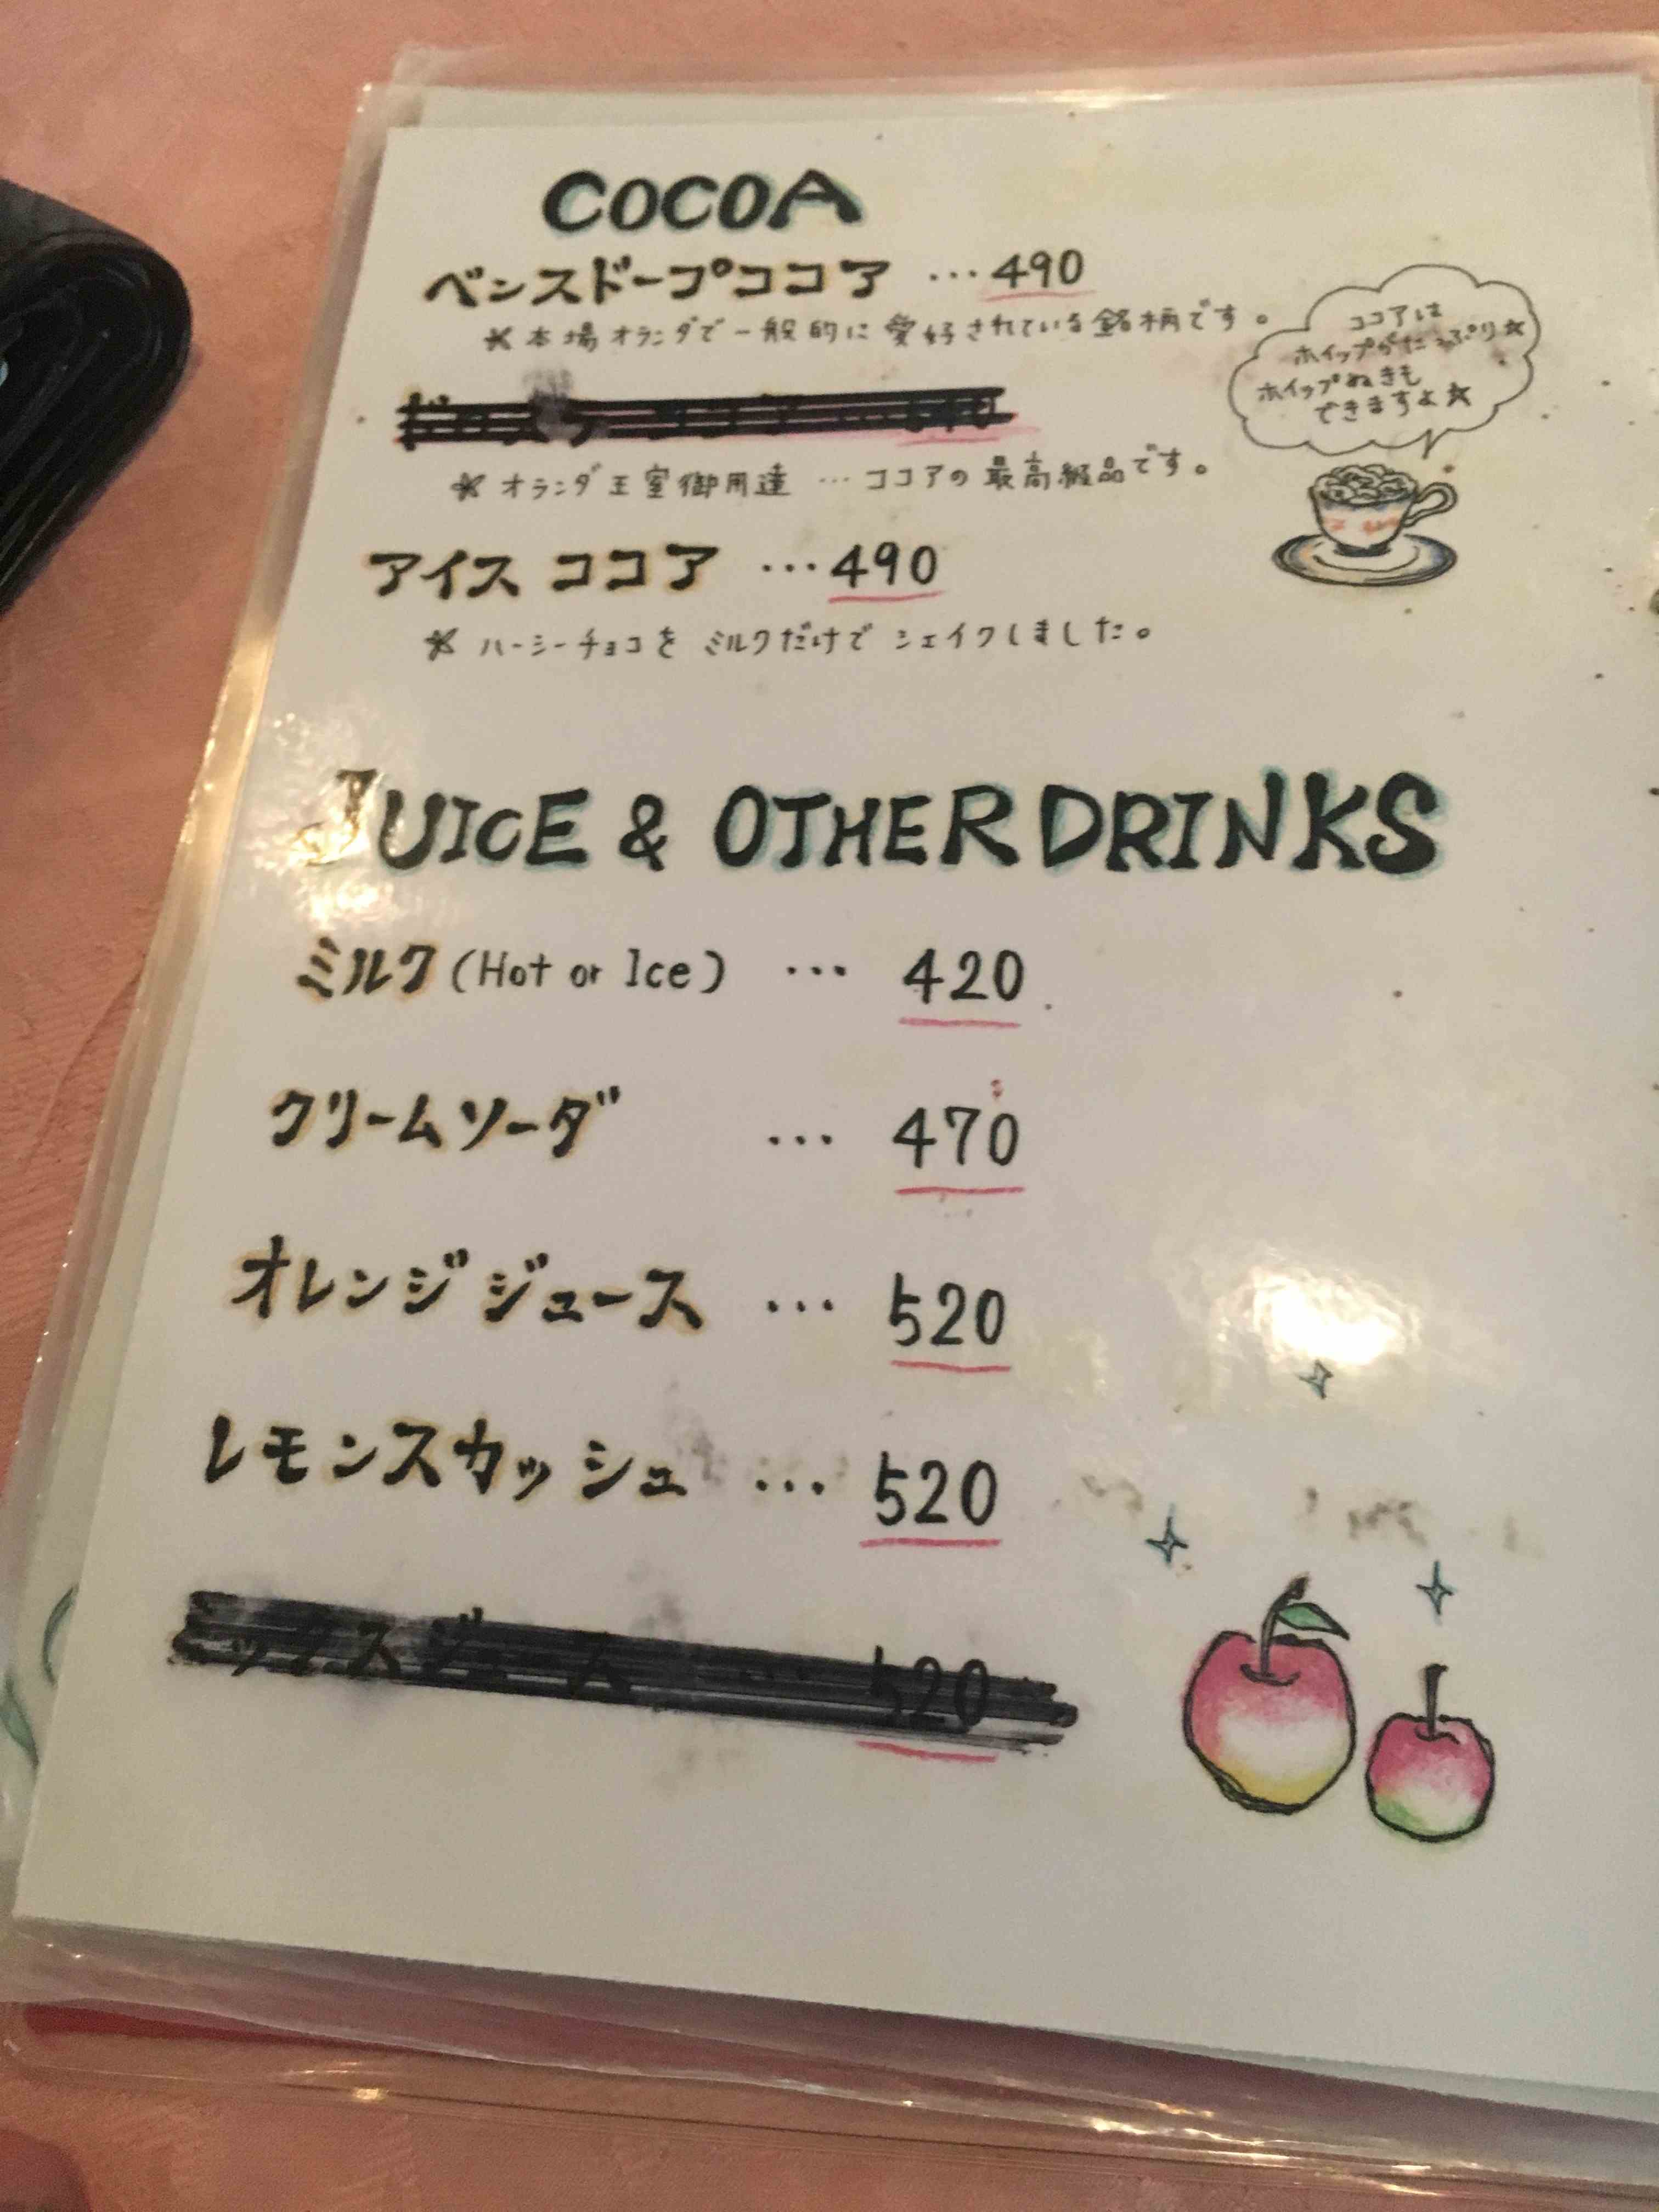 COCOA
ベンスドープココア …490
＊本場オランダで一般的に愛好されている銘柄です。
ココアは
ホイップがたっぷり☆
ホイップぬきも
できますよ☆
＊オランダ王室御用達…ココアの最高級品です。
アイスココア …490
＊ハーシーチョコをミルクだけでシェイクしました。
JUICE & OTHER DRINKS
ミルク(Hot or Ice) … 420
クリームソーダ … 470
オレンジジュース … 520
レモンスカッシュ … 520
ミックスジュース … 520